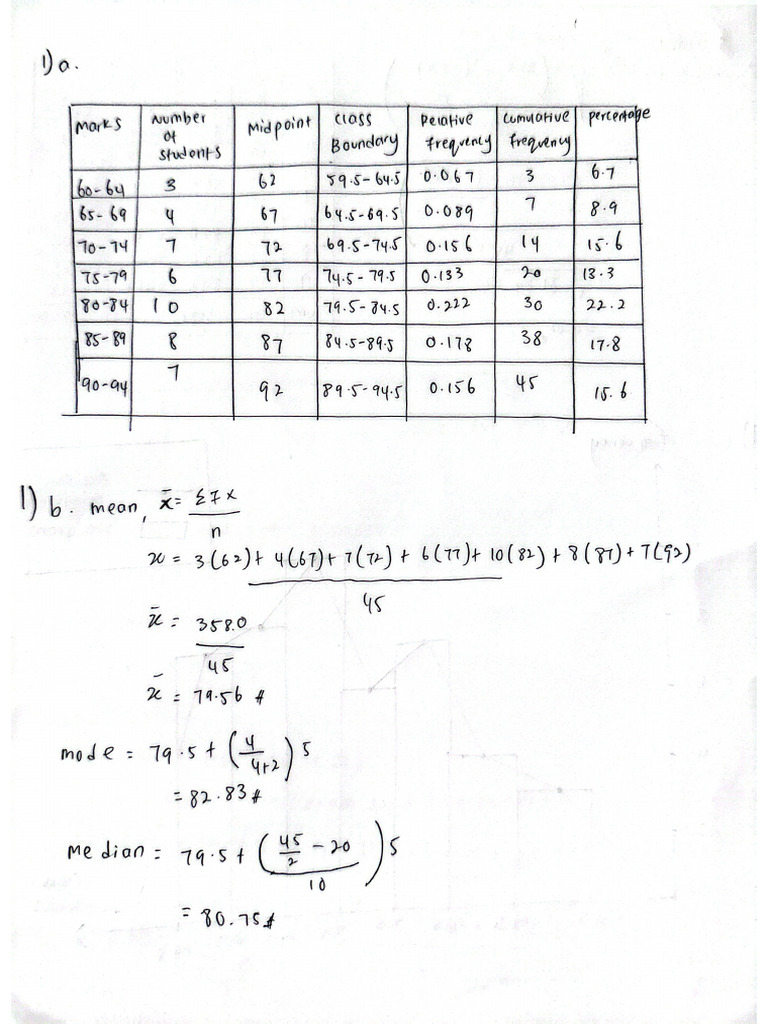 1) a.
Marks | Number of students | Midpoint | Class Boundary | Relative frequency | Cumulative frequency | percentage
60-64 | 3 | 62 | 59.5-64.5 | 0.067 | 3 | 6.7
65-69 | 4 | 67 | 64.5-69.5 | 0.089 | 7 | 8.9
70-74 | 7 | 72 | 69.5-74.5 | 0.156 | 14 | 15.6
75-79 | 6 | 77 | 74.5-79.5 | 0.133 | 20 | 13.3
80-84 | 10 | 82 | 79.5-84.5 | 0.222 | 30 | 22.2
85-89 | 8 | 87 | 84.5-89.5 | 0.178 | 38 | 17.8
90-94 | 7 | 92 | 89.5-94.5 | 0.156 | 45 | 15.6
1) b. mean, x̄ = Σfx / n
x = 3(62)+4(67)+7(72)+6(77)+10(82)+8(87)+7(92) / 45
x̄ = 3580 / 45
x̄ = 79.56 #
mode = 79.5 + (4 / 4+2) 5
= 82.83 #
Median = 79.5 + (45/2 - 20 / 10) 5
= 80.75 #